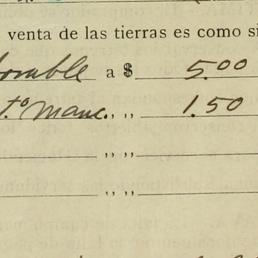 venta de las tierras es como si
a $ 5.00
t.º Manc. ,, ,, 1.50
,, ,,
,, ,,